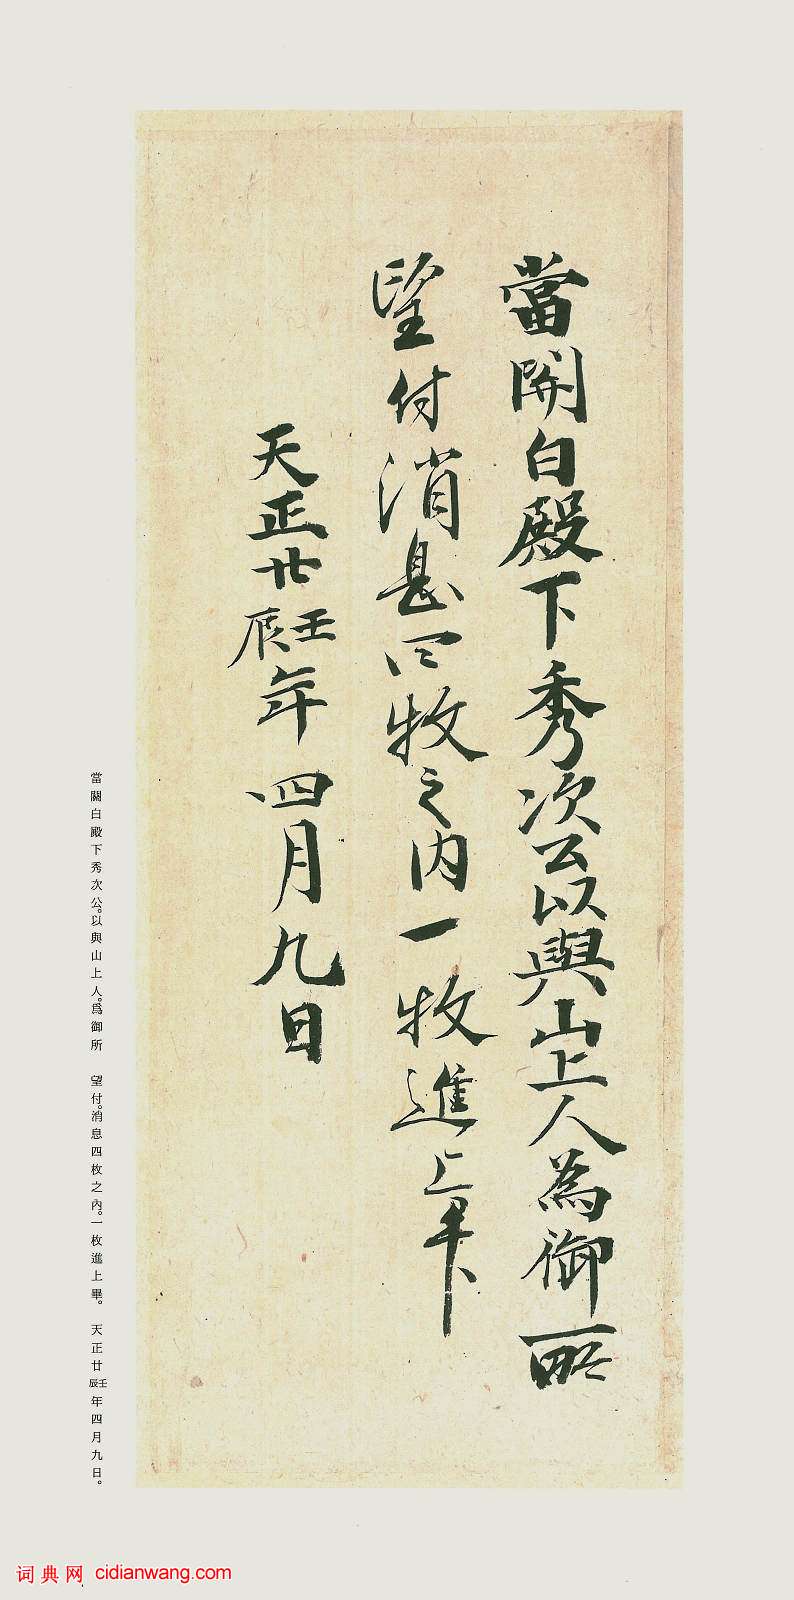 當關白殿下秀次公以與山上人為御所
望付消息四枚之内一枚進上畢
天正廿壬辰年四月九日
當關白殿下秀次公。以與山上人。爲御所　望付。消息四枚之內。一枚進上畢。　天正廿壬辰年四月九日。
词典网 cidianwang.com